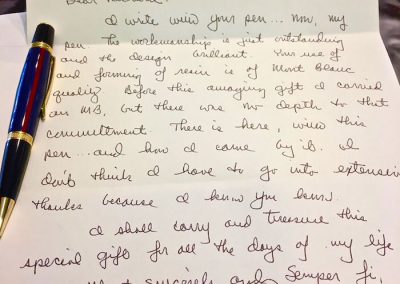 Dear
I write with your pen... now, my
pen. The workmanship is just outstanding
and the design brilliant. Your use of
and forming of resin is of Mont Blanc
quality. Before this amazing gift I carried
an MB, but there was no depth to that
committment. There is here, with this
pen...and how I came by it. I
don't think I have to go into extensive
thanks because I know you know.
I shall carry and treasure this
special gift for all the days of my life
Most sincerely and Semper fi,